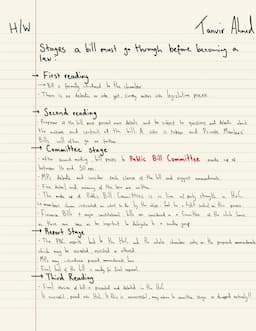 H/W
Tanvir Ahmed
Stages a bill must go through before becoming a
law:
→ First reading
→ Bill is formally introduced to the chamber
• There is no debate or vote yet, simply enters into legislative process
→ Second reading
• Proposer of the bill must present more details and be subject to questions and debate about
the nature and content of the bill. A vote is taken and Private Members'
Bills will often go no further.
→ Committee stage
• After second reading, bill passes to Public Bill Committee made up of
between 16 and 50 MPs.
• MPs debate and consider each clause of the bill and suggest amendments.
• Fine detail and meaning of the law are written.
• The make up of Public Bill Committees is in line with party strengths in HoC.
Finance Bills + major constitutional bills are considered in a Committee of the whole house
as important to delegate to a smaller group
→ Report Stage
• The PBC reports back to the HoC and the whole chamber votes on the proposed amendments
which may be accepted, rejected or altered.
MPs may introduce
Final draft of the bill is ready for final approval.
→ Third Reading
• Final version of bill is presented and debated in the HoC
• If successful, passed onto HoL. If this is unsuccessful, may return to committee stage or dropped entirely!!